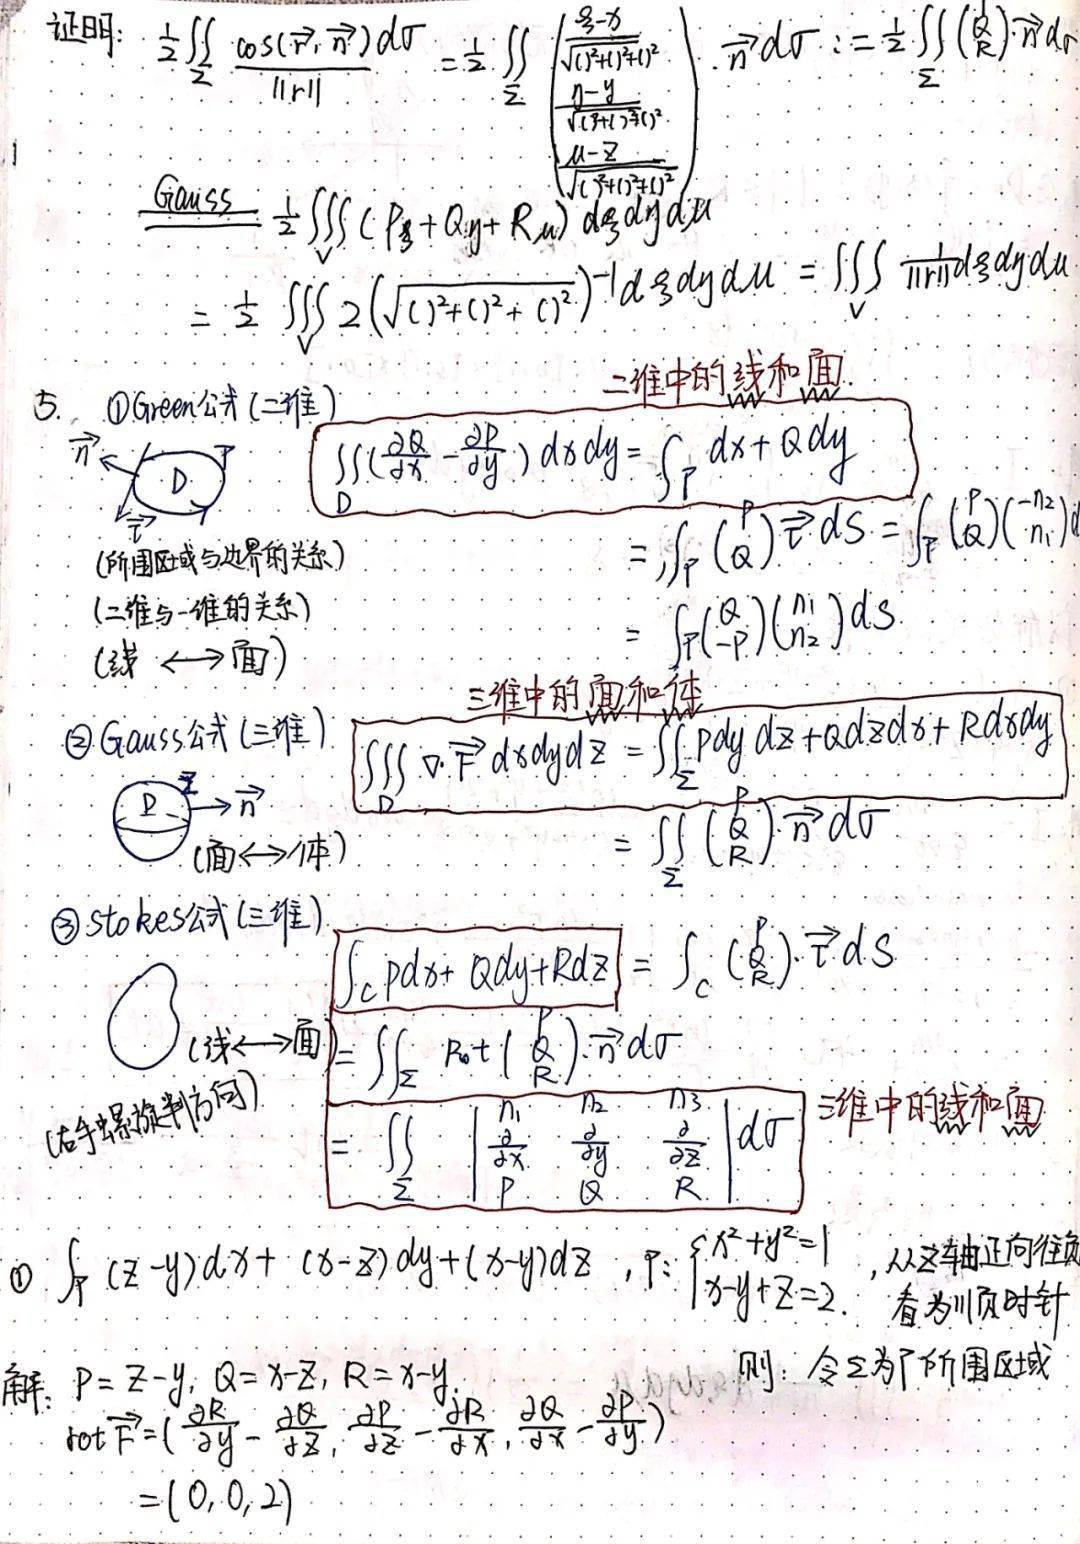 证明: ½∬_Σ cos(r⃗, n⃗)dσ / ||r|| = ½∬_Σ ( (ξ-x)/√(()²+()²+()²), (η-y)/√(()²+()²+()²), (μ-z)/√(()²+()²+()²) ) · n⃗ dσ := ½∬_Σ (Q R) · n⃗ dσ
Gauss ½∭_V (Pξ + Qy + Rμ) dξ dy dμ
= ½∭_V 2(√(()²+()²+()²))⁻¹ dξ dy dμ = ∭_V 1/||r|| dξ dy dμ
二维中的线和面
5. ①Green公式(二维)
n⃗ D τ⃗
∬_D (∂Q/∂x - ∂P/∂y) dxdy = ∫_P dx + Qdy
= ∫_P (P Q) τ⃗ dS = ∫_P (P Q)(-n₂ n₁) d
(所围区域与边界的关系)
(二维与一维的关系)
= ∫_P (Q -P)(n₁ n₂) dS
(线 ⟷ 面)
三维中的面和体
②Gauss公式(三维)
∭_D ∇·F⃗ dxdydz = ∬_Σ Pdydz + Qdzdx + Rdxdy
D Σ → n⃗
(面⟷体)
= ∬_Σ (P Q R) · n⃗ dσ
③stokes公式(三维)
∫_C Pdx + Qdy + Rdz = ∫_C (P Q R) · τ⃗ dS
(线⟷面)
= ∬_Σ Rot (P Q R) · n⃗ dσ
(右手螺旋判方向)
= ∬_Σ | n₁ n₂ n₃ ; ∂/∂x ∂/∂y ∂/∂z ; P Q R | dσ
三维中的线和面
① ∫_P (z-y)dx + (x-z)dy + (x-y)dz , P: { x²+y²=1 , x-y+z=2. , 从z轴正向往负
看为顺时针
则: 令Σ为Γ所围区域
解: P = z-y, Q = x-z, R = x-y.
rot F⃗ = (∂R/∂y - ∂Q/∂z, ∂P/∂z - ∂R/∂x, ∂Q/∂x - ∂P/∂y)
= (0, 0, 2)